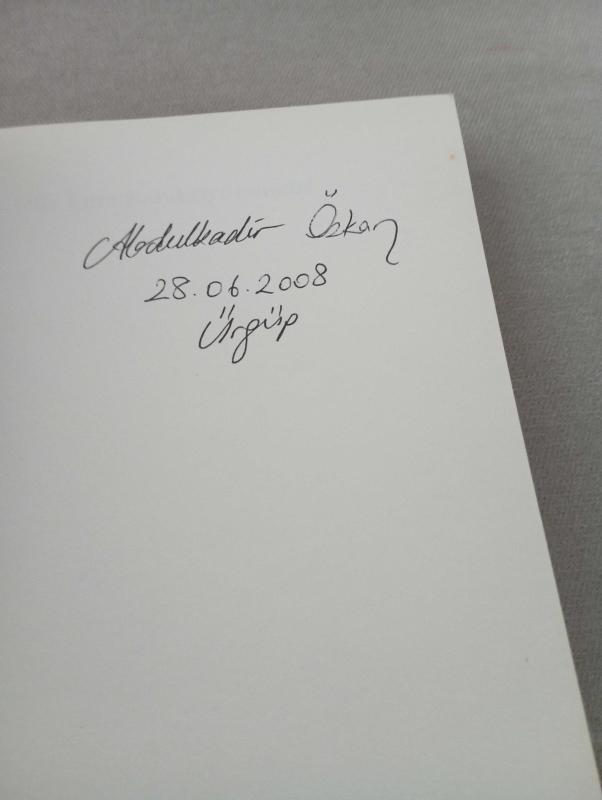 Abdulkadir Özkan
28.06.2008
Ürgüp